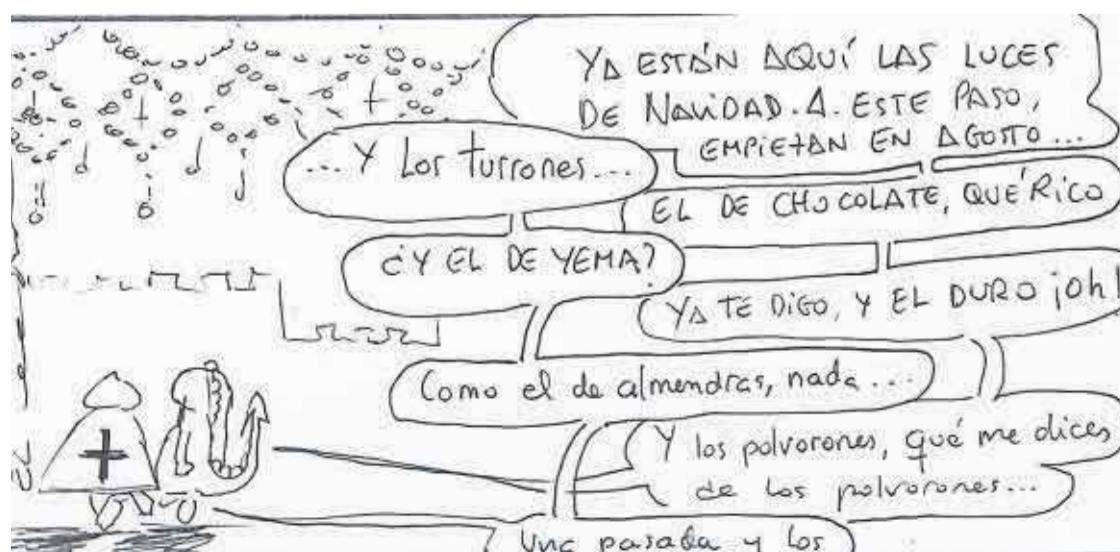 YA ESTÁN AQUÍ LAS LUCES
DE NAVIDAD. A. ESTE PASO,
EMPIEZAN EN AGOSTO...
... Y Los turrones...
EL DE CHOCOLATE, QUÉ RICO
¿Y EL DE YEMA?
YA TE DIGO, Y EL DURO ¡Oh!
Como el de almendras, nada...
Y los polvorones, qué me dices
de los polvorones...
Una pasada y los